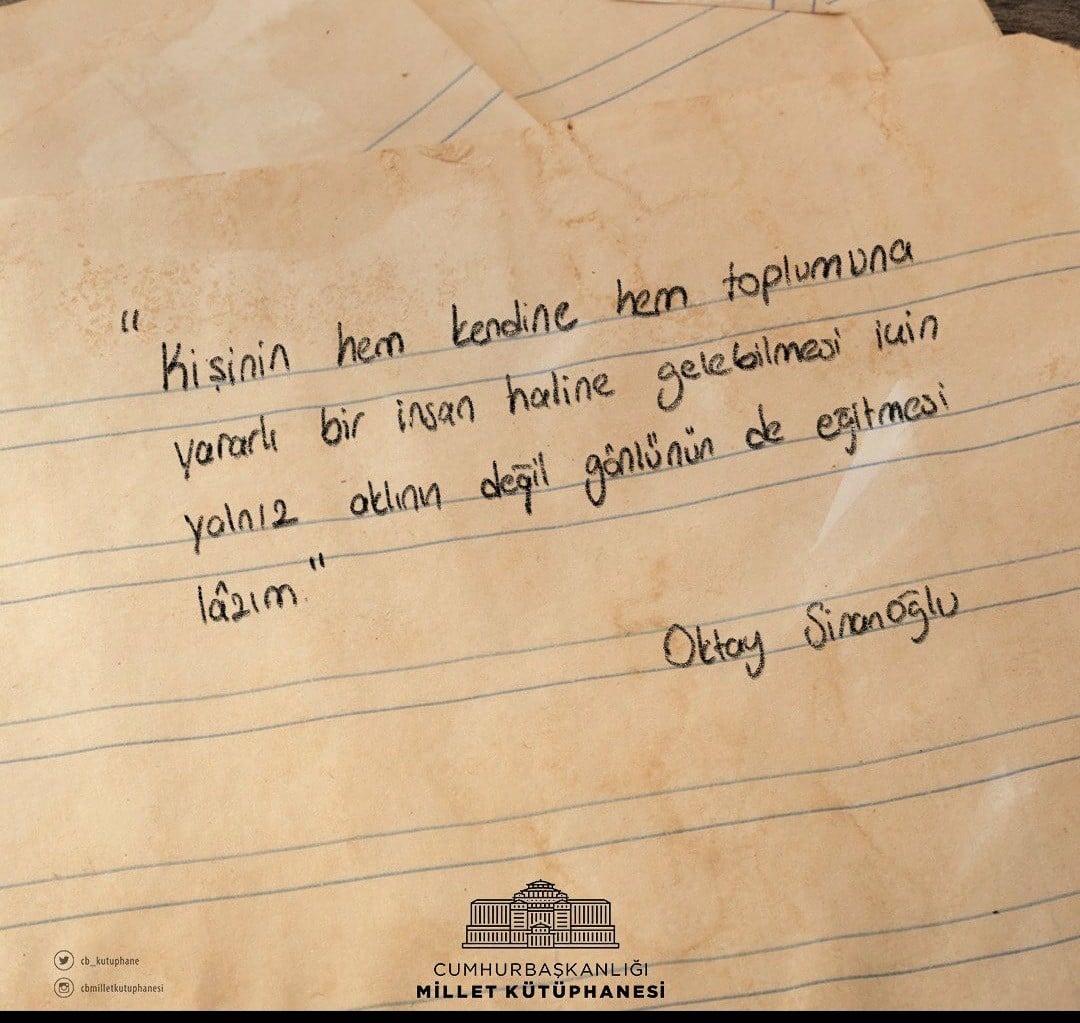 "Kişinin hem kendine hem toplumuna
yararlı bir insan haline gelebilmesi için
yalnız aklının değil gönlünün de eğitmesi
lâzım."
Oktay Sinanoğlu
CUMHURBAŞKANLIĞI
MİLLET KÜTÜPHANESİ
cb_kutuphane
cbmilletkutuphanesi